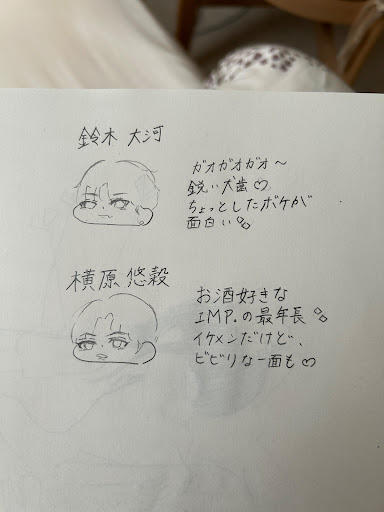 鈴木 大河
ガオガオガオ〜
鋭い犬歯♡
ちょっとしたボケが
面白い
横原 悠毅
お酒好きな
IMP.の最年長
イケメンだけど、
ビビりな一面も♡